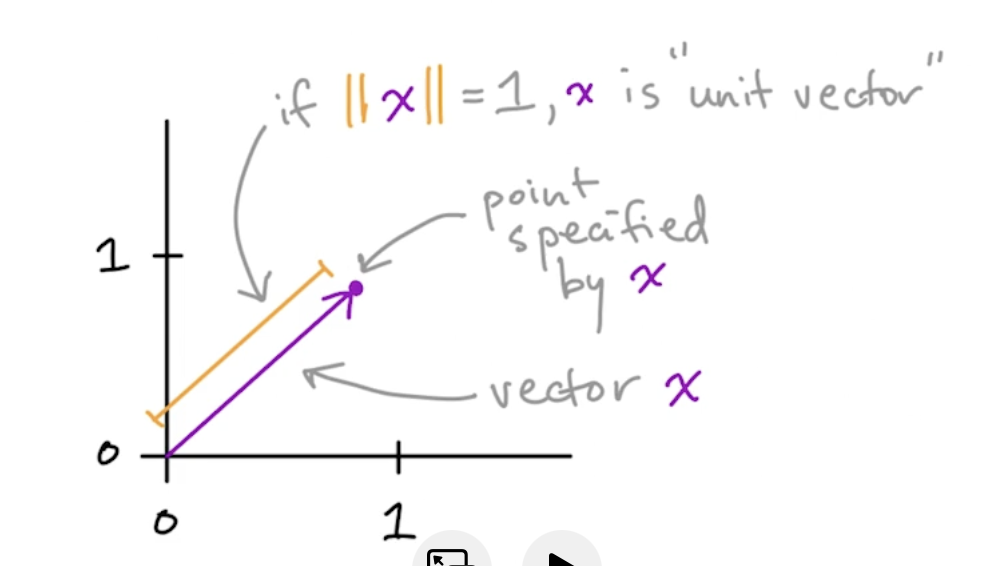 if ||x|| = 1, x is "unit vector"
point
specified
by x
1
vector x
0
0 1